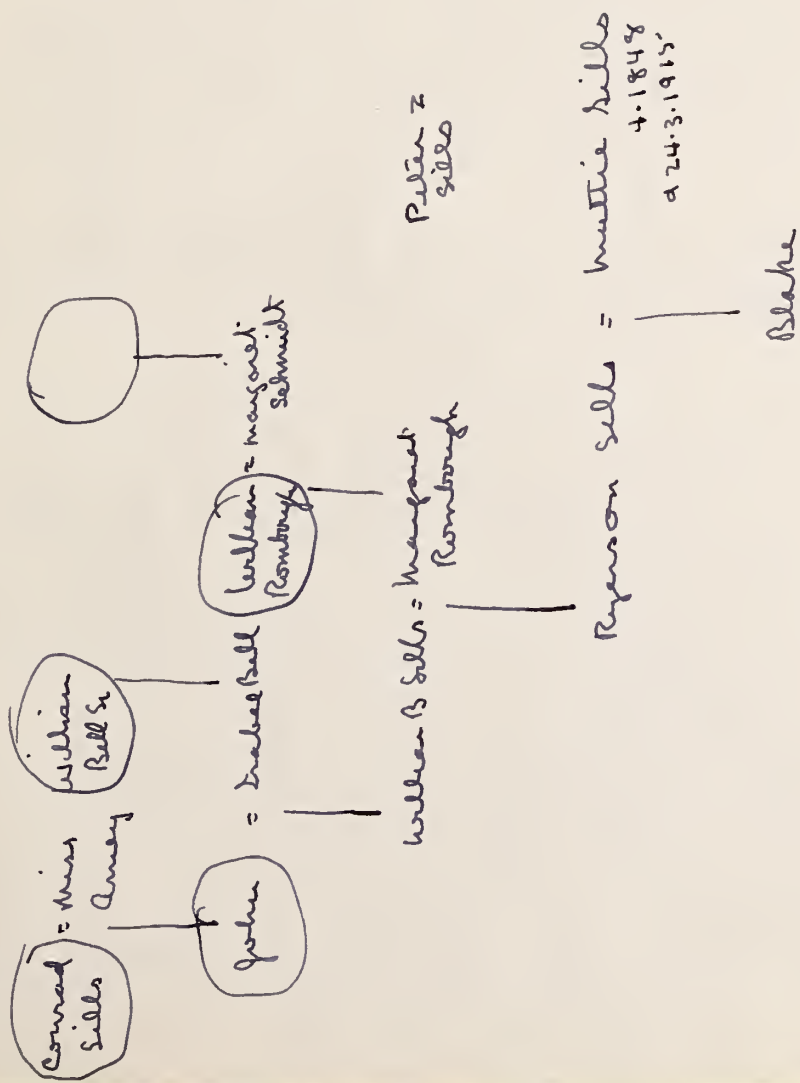 Conrad = Miss
Sills Amey
William
Bell Sr
John = Isabel Bell
William = Margaret
Rombough Schmidt
William B Sills = Margaret
Rombough
Peter =
Sills
Ryerson Sills = Mattie Sills
4.1848
d 24.3.1915
Blake